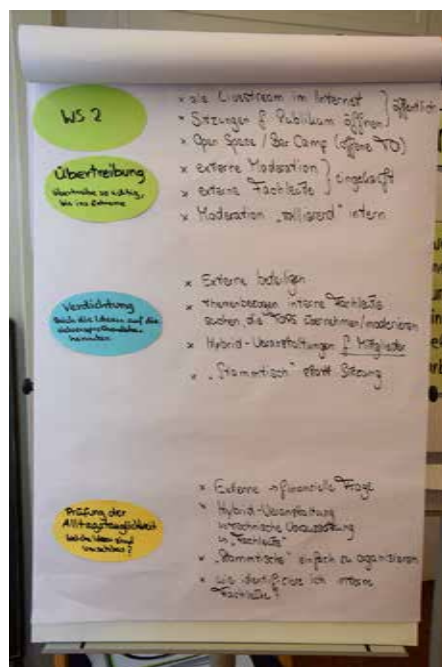 WS 2
Übertreibung
Übertreibe so richtig,
bis ins Extreme
x als Livestream im Internet
x Sitzungen f Publikum öffnen
öffentlich
x Open Space / Bar Camp (offene TO)
x externe Moderation
x externe Fachleute
eingekauft
x Moderation „rollierend" intern
Verdichtung
die Ideen auf die
x Externe beteiligen
x themenbezogen interne Fachleute
suchen die TOPS übernehmen/moderieren
x Hybrid-Veranstaltungen f Mitglieder
x „Stammtisch" statt Sitzung
Prüfung der
Alltagstauglichkeit
welche Ideen sind
umsetzbar?
x Externe → finanzielle Frage
x Hybrid-Veranstaltung
technische Voraussetzung
„Fachleute"
x „Stammtische" einfach zu oganisieren
x wie identifiziere ich interne
Fachleute?